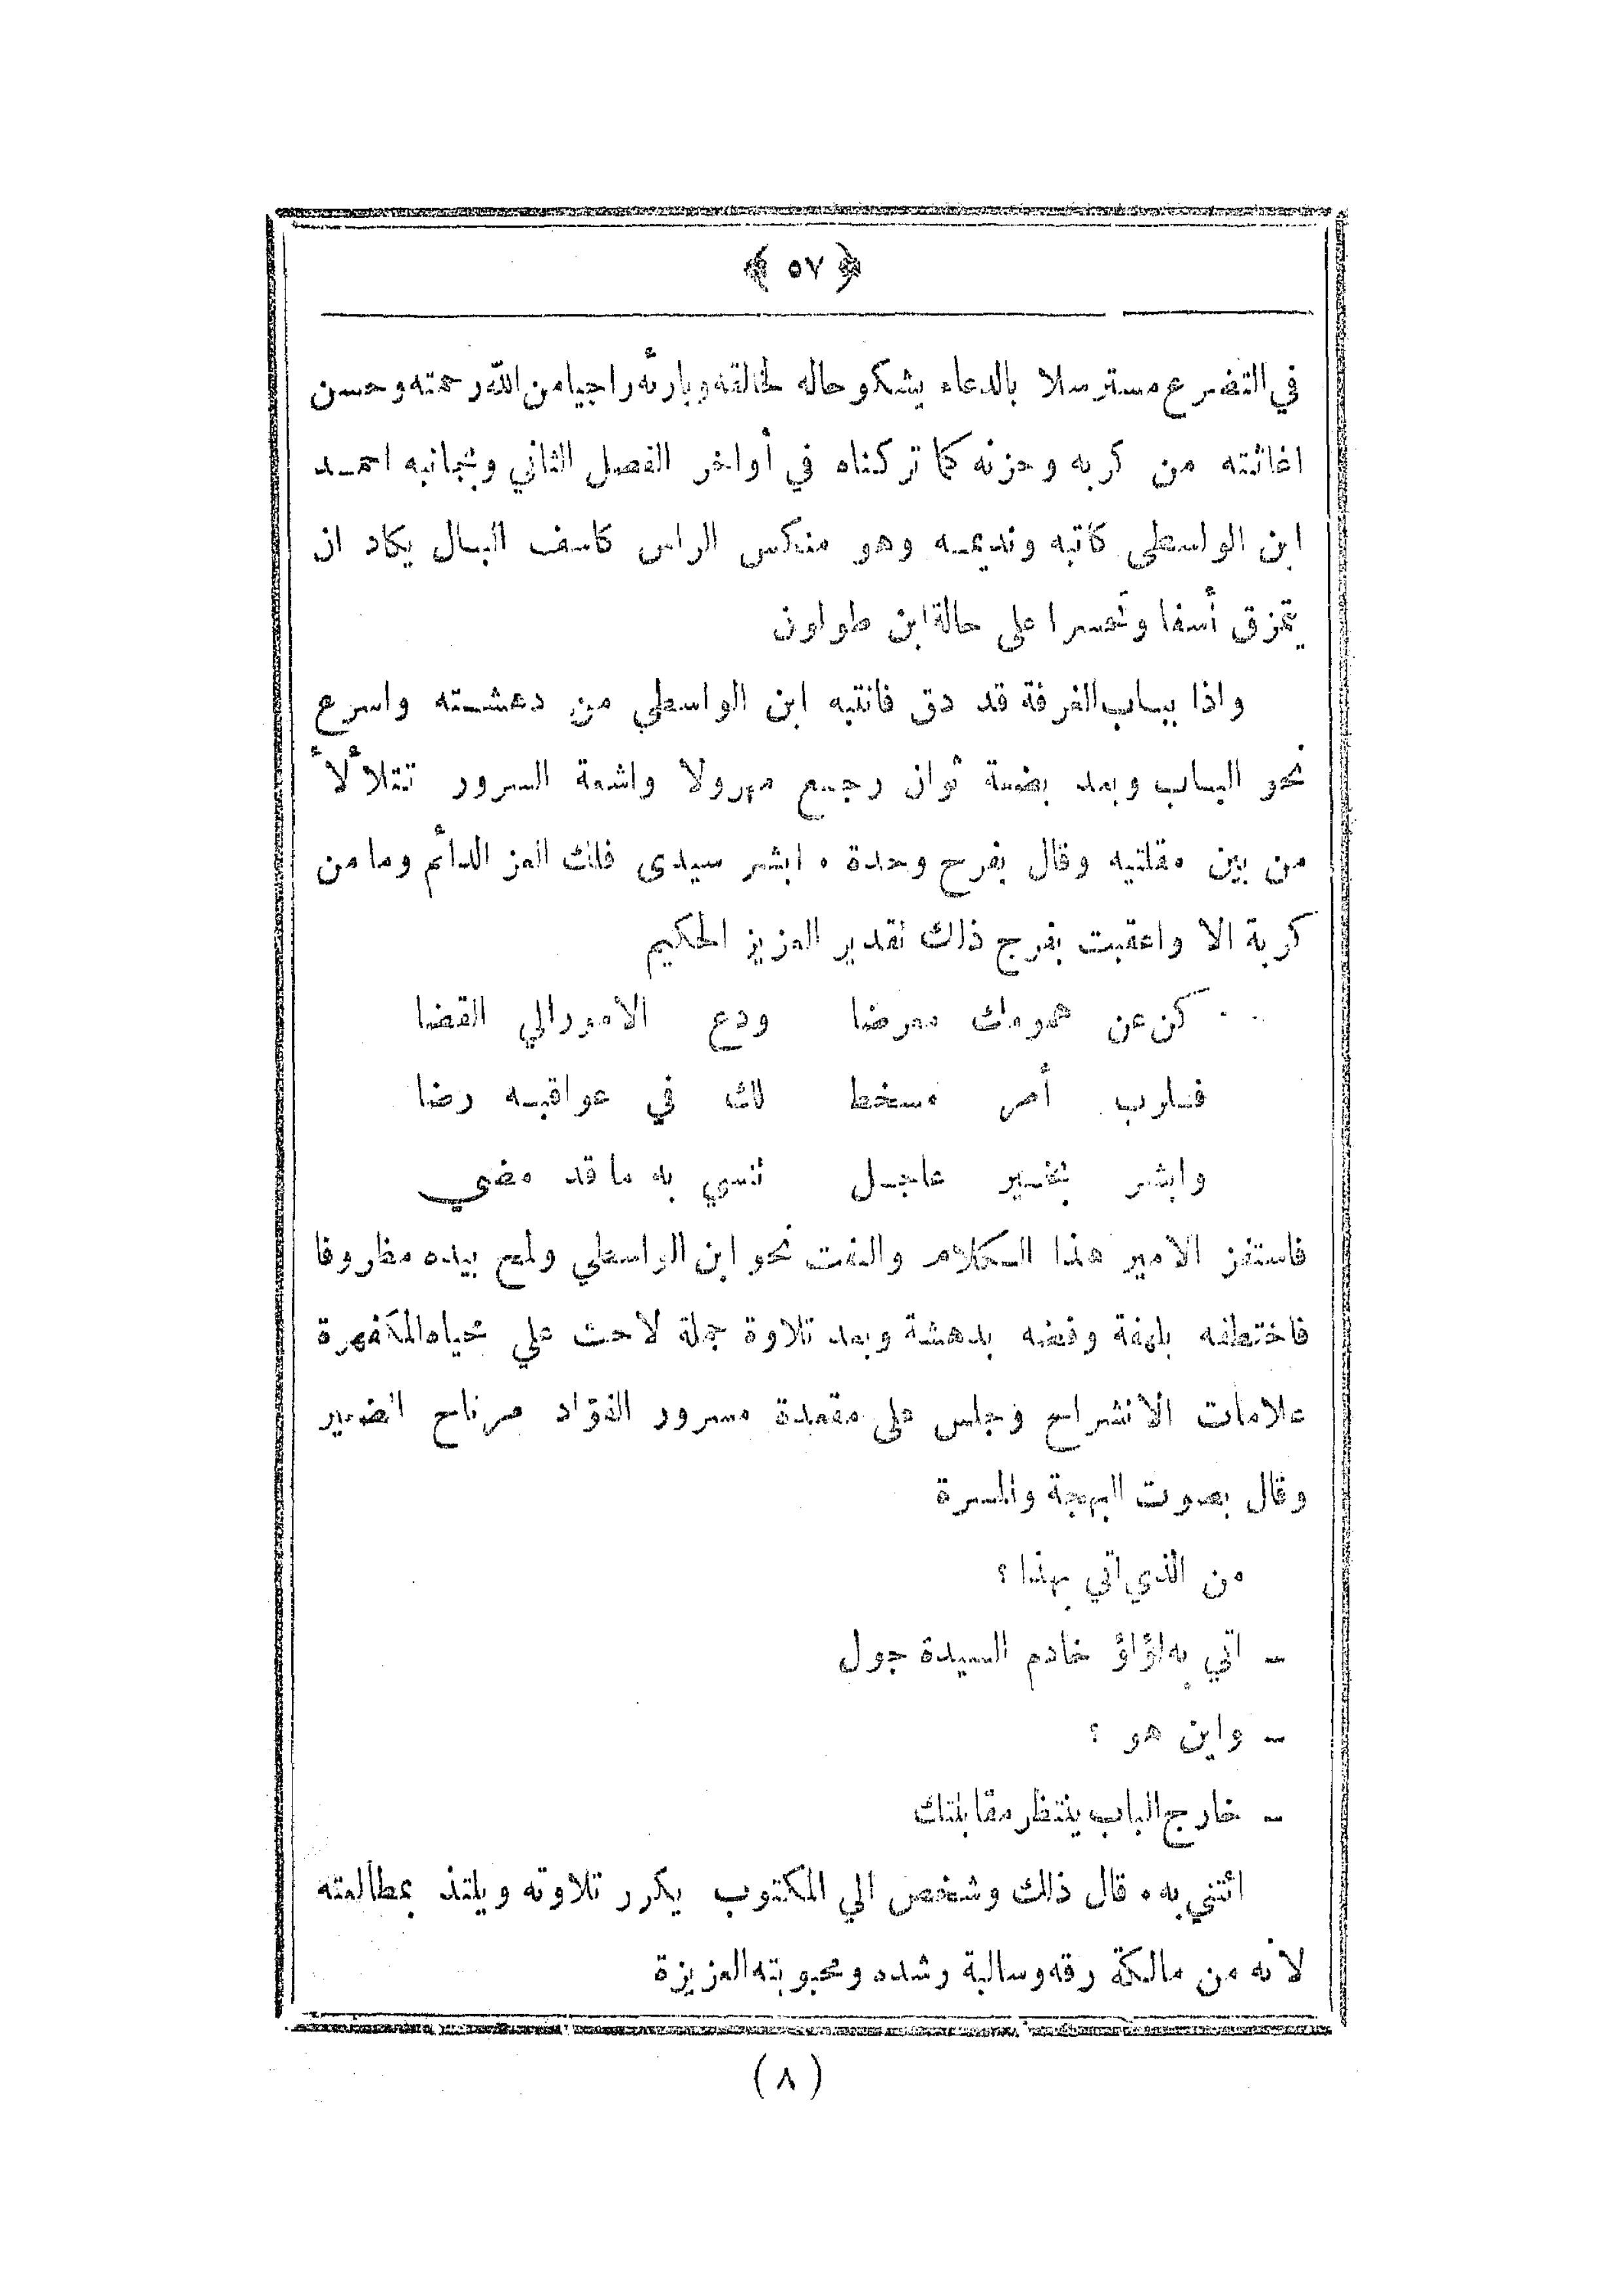 ﴿ ٥٧ ﴾
في التضرع مسترسلا بالدعاء يشكو حاله لخالقه وبارئه راجيا من الله رحمته وحسن
اغاثته من كربه وحزنه كما تركناه في أواخر الفصل الثاني وبجانبه احمد
ابن الواسطى كاتبه ونديمه وهو منكس الراس كاسف البال يكاد ان
يتمزق أسفا وتحسرا على حالة ابن طولون
واذا بباب الغرفة قد دق فانتبه ابن الواسطي من دهشته واسرع
نحو الباب وبعد بضعة ثوان رجع مهرولا واشعة السرور تتلألأ
من بين مقلتيه وقال بفرح وحدة ٠ ابشر سيدى فلك العز الدائم وما من
كربة الا واعقبت بفرج ذلك تقدير العزيز الحكيم
كن عن همومك معرضا ودع الامور الي القضا
فلرب أمر مسخط لك في عواقبه رضا
وابشر بخير عاجل تنسي به ما قد مضي
فاستفز الامير هذا الكلام والتفت نحو ابن الواسطي ولمع بيده مظروفا
فاختطفه بلهفة وفضه بدهشة وبعد تلاوة جملة لاحت علي محياه المكفهرة
علامات الانشراح وجلس على مقعدة مسرور الفؤاد مرتاح الضمير
وقال بصوت البهجة والمسرة
من الذي اتي بهذا ؟
– اتي به لؤلؤ خادم السيدة جول
– واين هو ؟
– خارج الباب ينتظر مقابلتك
ائتني به ٠ قال ذلك وشخص الي المكتوب يكرر تلاوته ويلتذ بمطالعته
لانه من مالكة رقه وسالبة رشده ومحبوبته العزيزة
(٨)